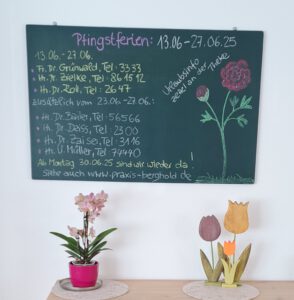 Pfingstferien: 13.06 - 27.06.25
13.06. - 27.06.
Hr. Dr. Grünwald, Tel: 3333
Hr. Dr. Bielke, Tel: 861512
Hr. Dr. Zott, Tel: 2647
zusätzlich vom 23.06. - 27.06.:
Hr. Dr. Binder, Tel: 56566
Hr. Dr. Dass, Tel 2300
Hr. Dr. Zaisei, Tel: 3116
Hr. V. Müller, Tel 79490
Ab Montag 30.06.25 sind wir wieder da!
Siehe auch www.praxis-berghold.de
Urlaubsinfo
zettel an der Theke